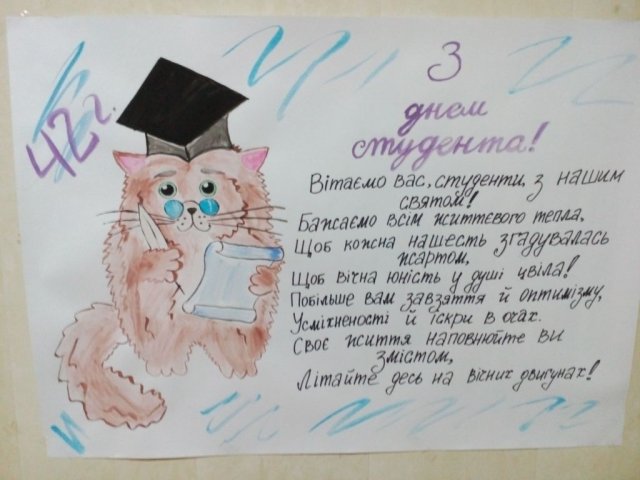 42 г.
З
днем
студента!
Вітаємо вас, студенти, з нашим
святом!
Бажаємо всім життєвого тепла,
Щоб кожна нашесть згадувалась
жартом,
Щоб вічна юність у душі цвіла!
Побільше вам завзяття й оптимізму,
Усміхненості й іскри в очах.
Своє життя наповнюйте ви
змістом,
Літайте десь на вічних двигунах!